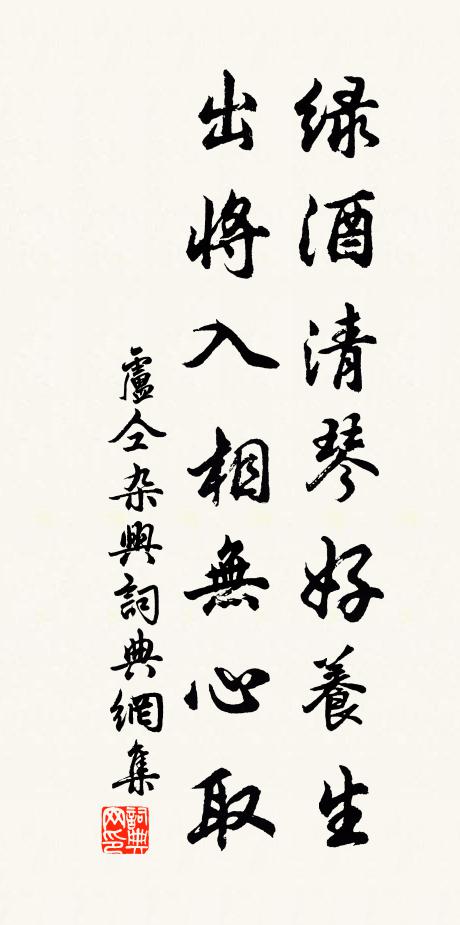 绿酒清琴好養生
出將入相無心取
盧仝杂興詞典網集
詞典
网印